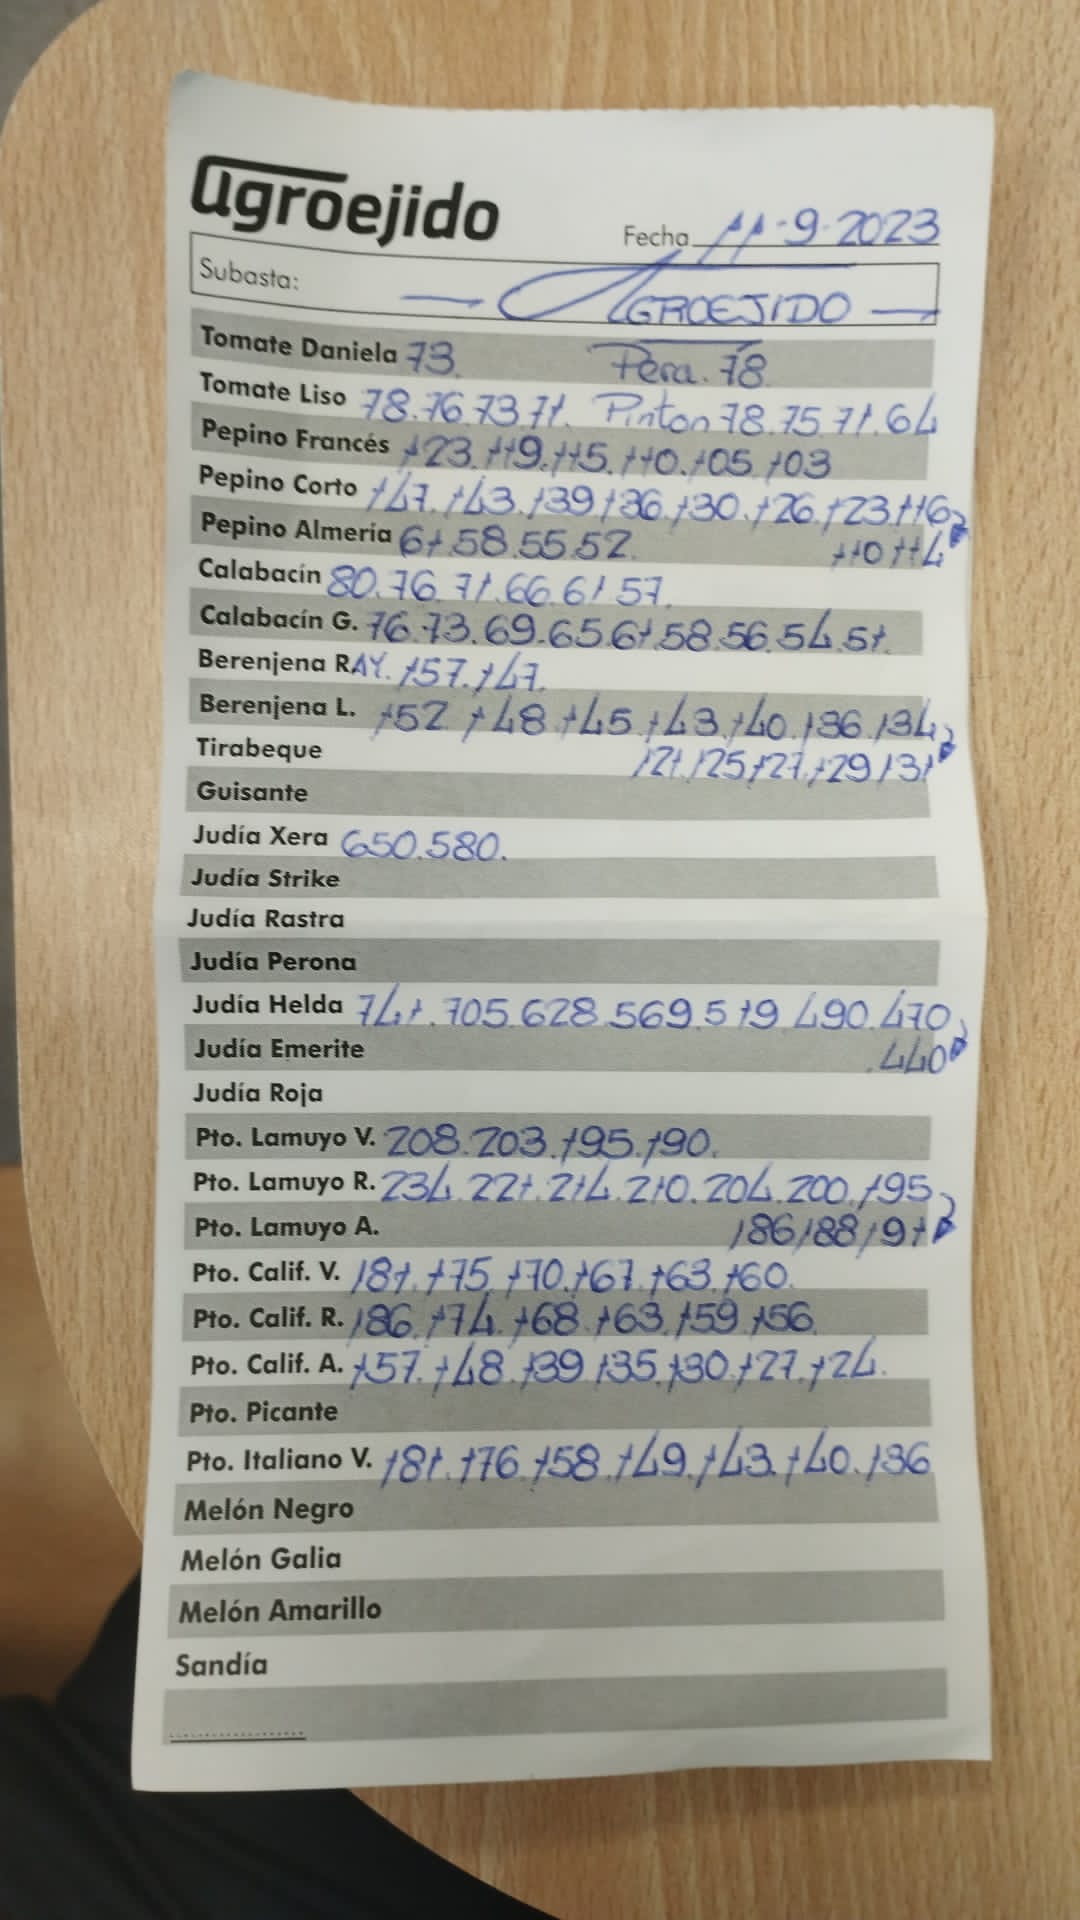 agroejido
Fecha 11-9-2023
Subasta: — AGROEJIDO —
Tomate Daniela 73. Pera. 78
Tomate Liso 78.76.73.71. Pinton 78.75.71.64
Pepino Francés 123.119.115.110.105.103
Pepino Corto 147.143.139.136.130.126.123.116
Pepino Almería 61.58.55.52. 110 114
Calabacín 80.76.71.66.61.57.
Calabacín G. 76.73.69.65.61.58.56.54.51.
Berenjena RAY. 157.147.
Berenjena L. 152.148.145.143.140.136.134
Tirabeque 121.125.127.129.131
Guisante
Judía Xera 650.580.
Judía Strike
Judía Rastra
Judía Perona
Judía Helda 741.705.628.569.519.490.470
Judía Emerite .440
Judía Roja
Pto. Lamuyo V. 208.203.195.190.
Pto. Lamuyo R. 234.221.214.210.204.200.195
Pto. Lamuyo A. 186/188/191
Pto. Calif. V. 181.175.170.167.163.160.
Pto. Calif. R. 186.174.168.163.159.156
Pto. Calif. A. 157.148.139.135.130.127.124.
Pto. Picante
Pto. Italiano V. 181.176.158.149.143.140.136
Melón Negro
Melón Galia
Melón Amarillo
Sandía